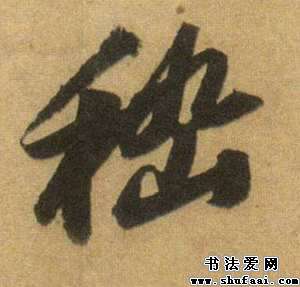 嵇
书法爱网
www.shufaai.com